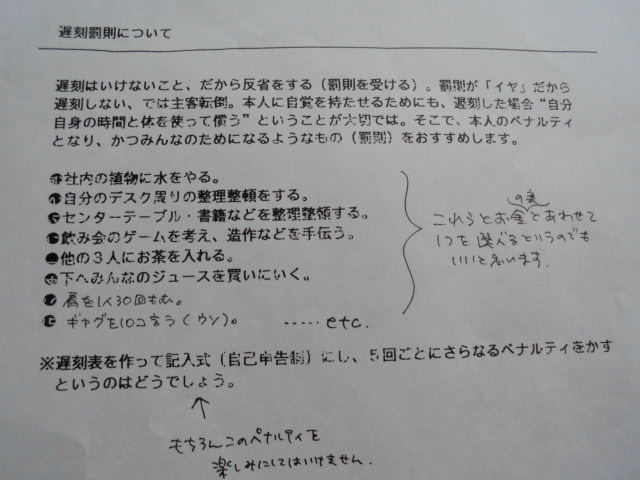 遅刻罰則について
遅刻はいけないこと、だから反省をする（罰則を受ける）。罰則が「イヤ」だから
遅刻しない、では主客転倒。本人に自覚を持たせるためにも、遅刻した場合“自分
自身の時間と体を使って償う”ということが大切では。そこで、本人のペナルティ
となり、かつみんなのためになるようなもの（罰則）をおすすめします。
●社内の植物に水をやる。
●自分のデスク周りの整理整頓をする。
●センターテーブル・書籍などを整理整頓する。
●飲み会のゲームを考え、造作などを手伝う。
●他の３人にお茶を入れる。
●下へみんなのジュースを買いにいく。
●肩を1人30回もむ。
●ギャグを10コ言う（ウソ）。 ‥‥‥etc.
これらとお金の案とあわせて
1つを選べるというのでも
いいと思います.
※遅刻表を作って記入式（自己申告制）にし、５回ごとにさらなるペナルティをかす
というのはどうでしょう。
もちろんこのペナルティを
楽しみにしてはいけません.